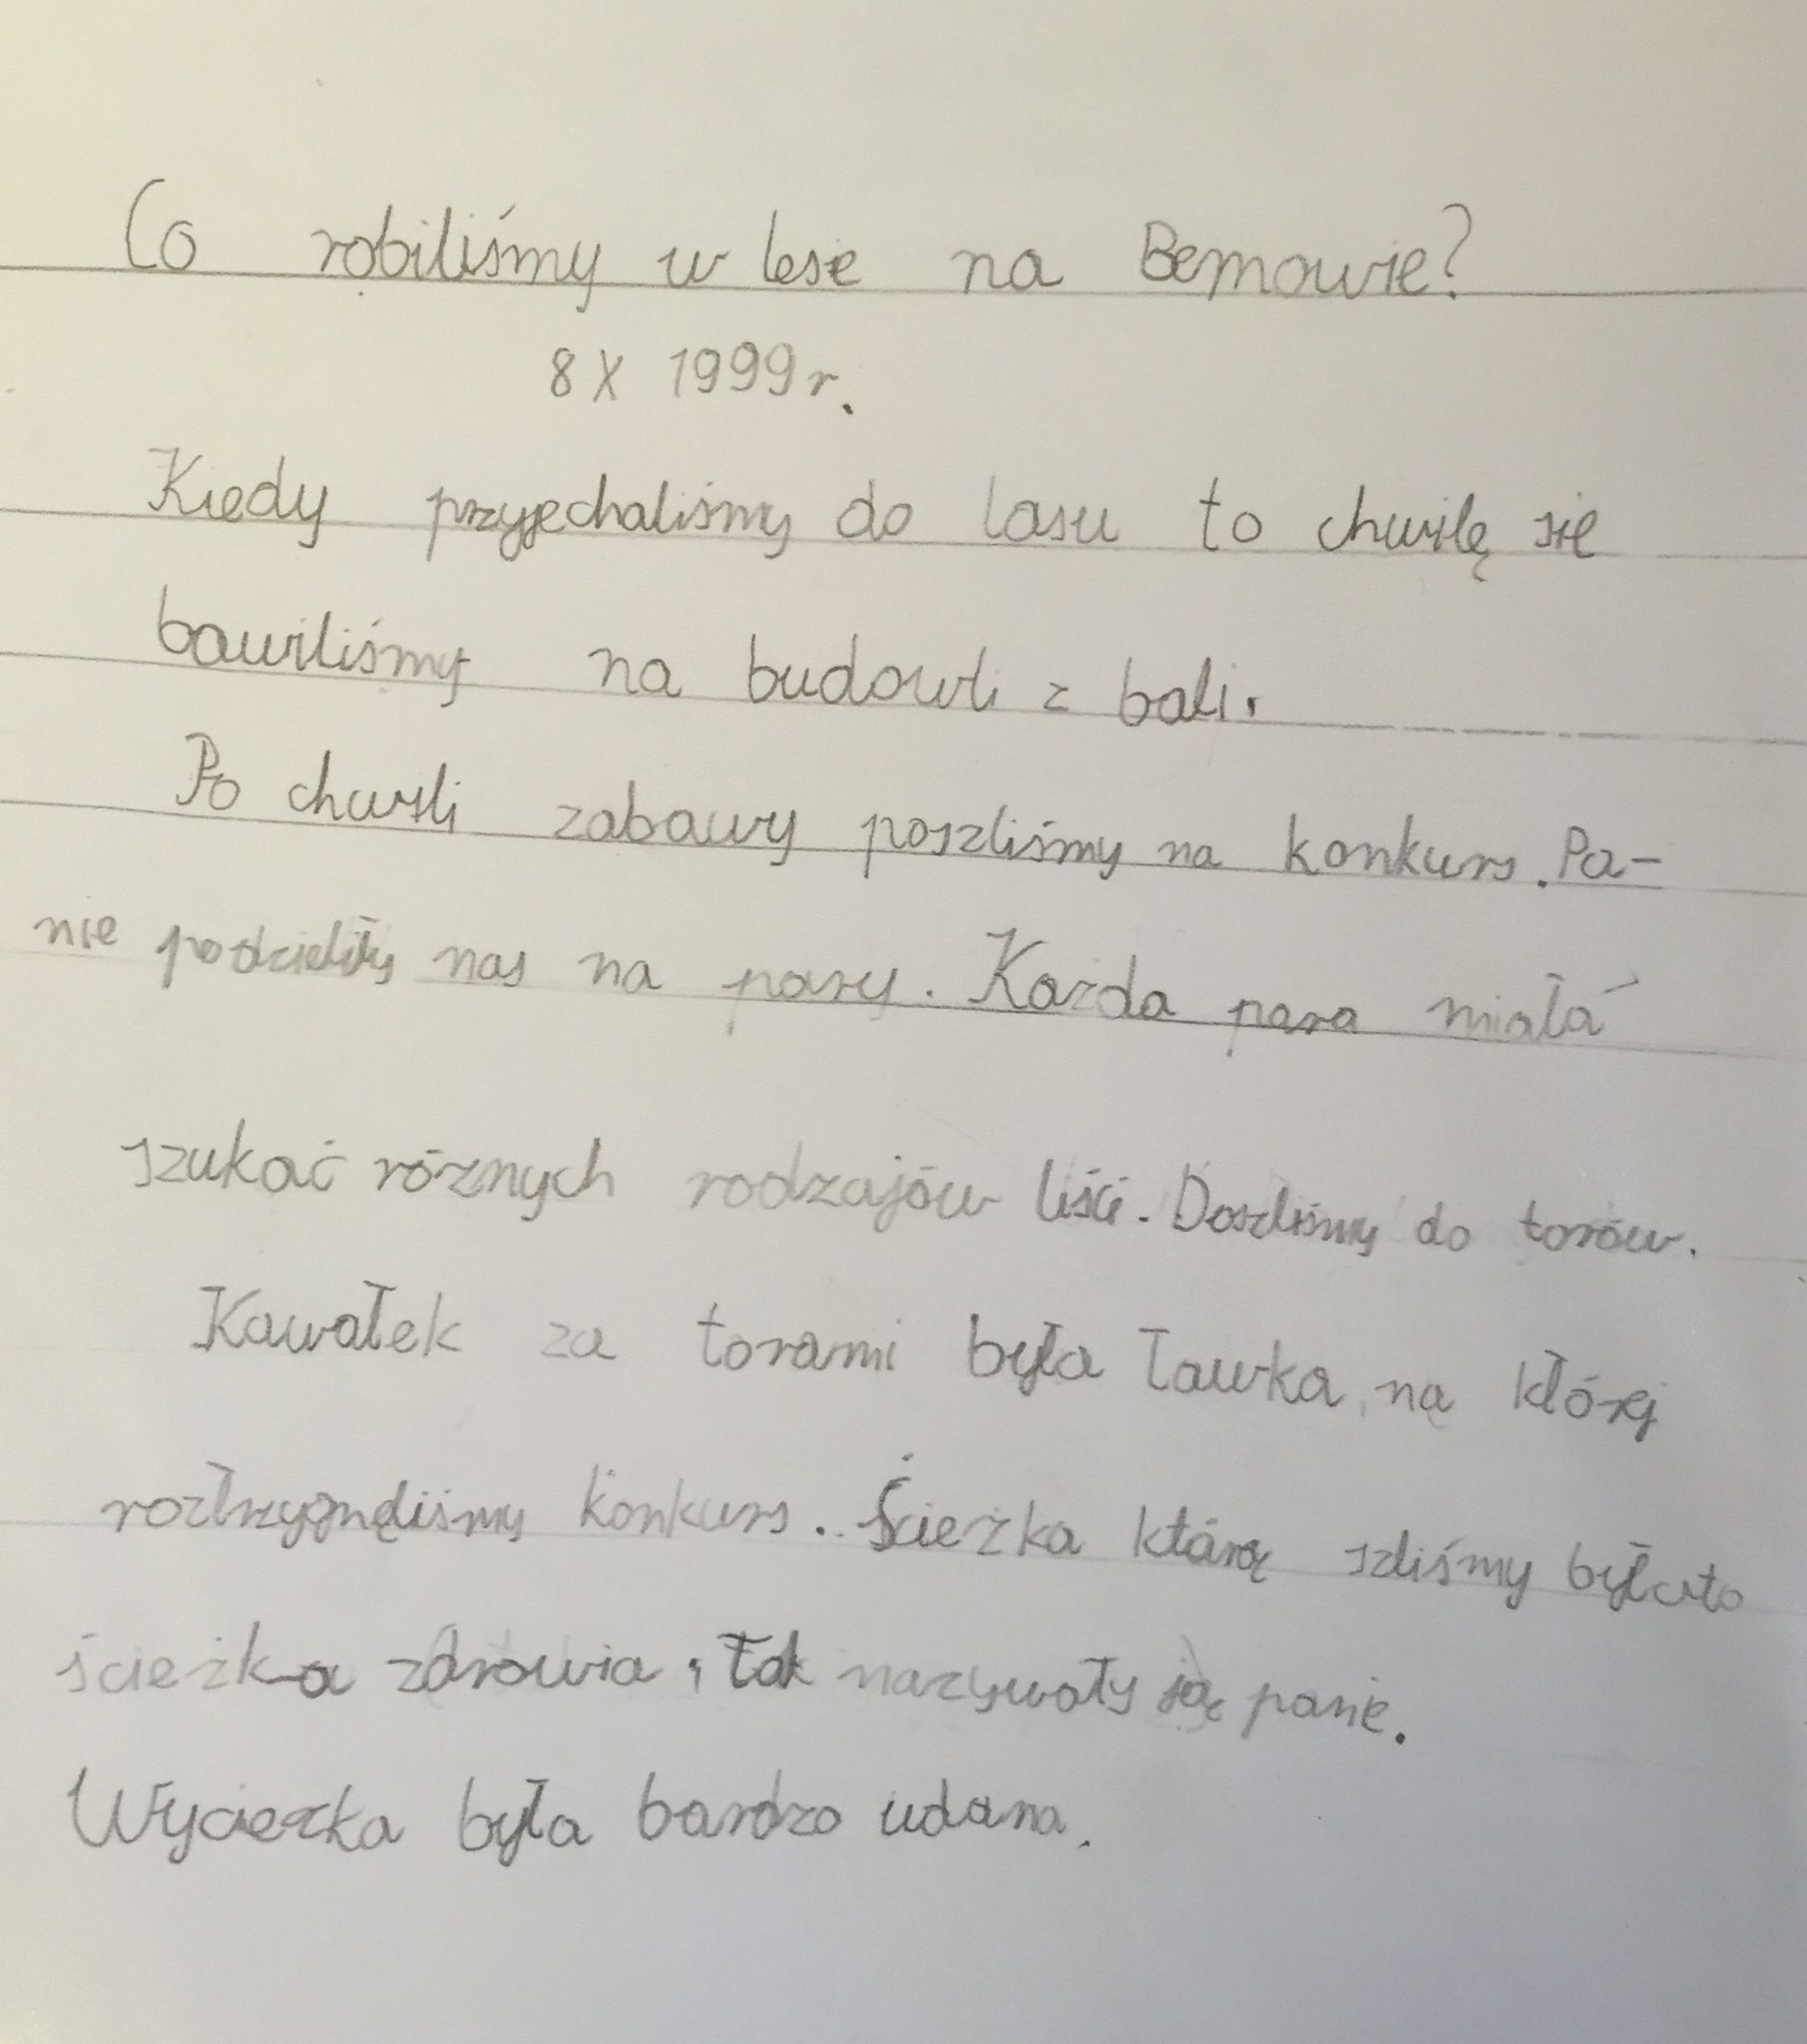 Co robiliśmy w lesie na Bemowie?
8 X 1999 r.
Kiedy przyjechaliśmy do lasu to chwilę się
bawiliśmy na budowli z bali.
Po chwili zabawy poszliśmy na konkurs. Pa-
nie podzieliły nas na pary. Każda para miała
szukać różnych rodzajów liści. Doszliśmy do torów.
Kawałek za torami była ławka, na której
roztrzygnęliśmy konkurs. Ścieżka którą szliśmy była to
ścieżka zdrowia, tak nazywały ją panie.
Wycieczka była bardzo udana.